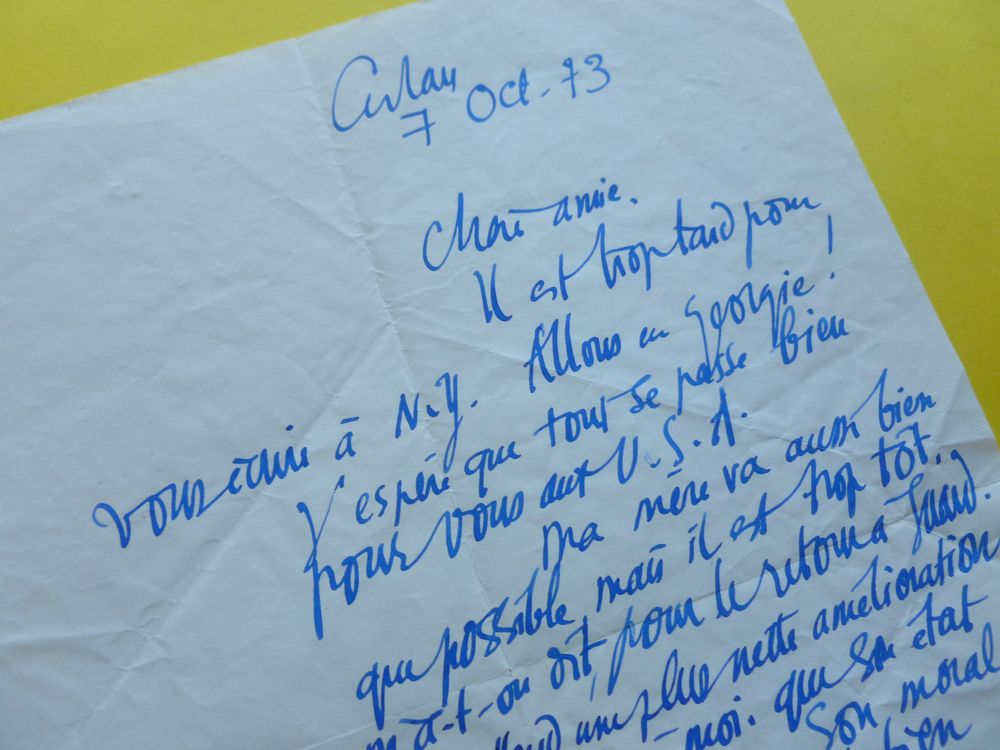 7 Oct. 73
Chère amie.
Il est trop tard pour
vous écrire à N.Y. Allons en Georgie!
J'espère que tout se passe bien
pour vous aux U.S.A.
Ma mère va aussi bien
que possible, mais il est trop tôt,
m'a-t-on dit, pour le retour à
une plus nette amélioration.
moi. que son état
Son moral
bien